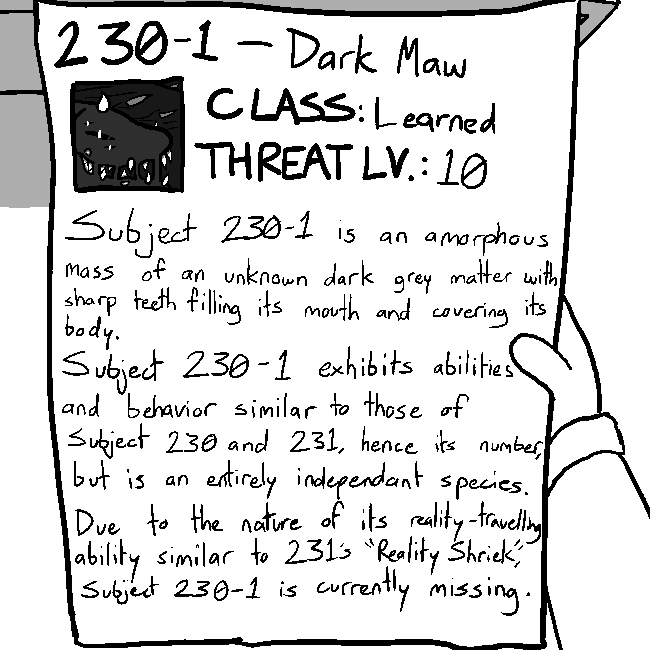 230-1 — Dark Maw
CLASS: Learned
THREAT LV.: 10
Subject 230-1 is an amorphous
mass of an unknown dark grey matter with
sharp teeth filling its mouth and covering its
body.
Subject 230-1 exhibits abilities
and behavior similar to those of
Subject 230 and 231, hence its number,
but is an entirely independant species.
Due to the nature of its reality-travelling
ability similar to 231's "Reality Shriek",
Subject 230-1 is currently missing.